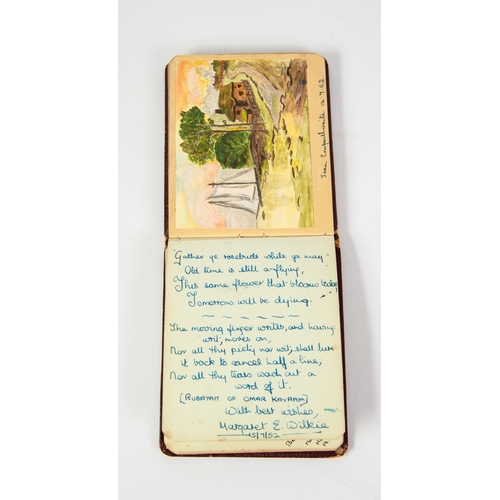 Jean Couperthwaite 14.7.52
"Gather ye rosebuds while ye may
Old time is still a-flying,
This same flower that blooms today
Tomorrow will be dying.
The moving finger writes, and having
writ, moves on,
Nor all thy piety nor wit, shall lure
it back to cancel half a line,
Nor all thy tears wash out a
word of it.
[RUBAYAT OF OMAR KAYAAM]
With best wishes,
Margaret E. Wilkie
15/7/52